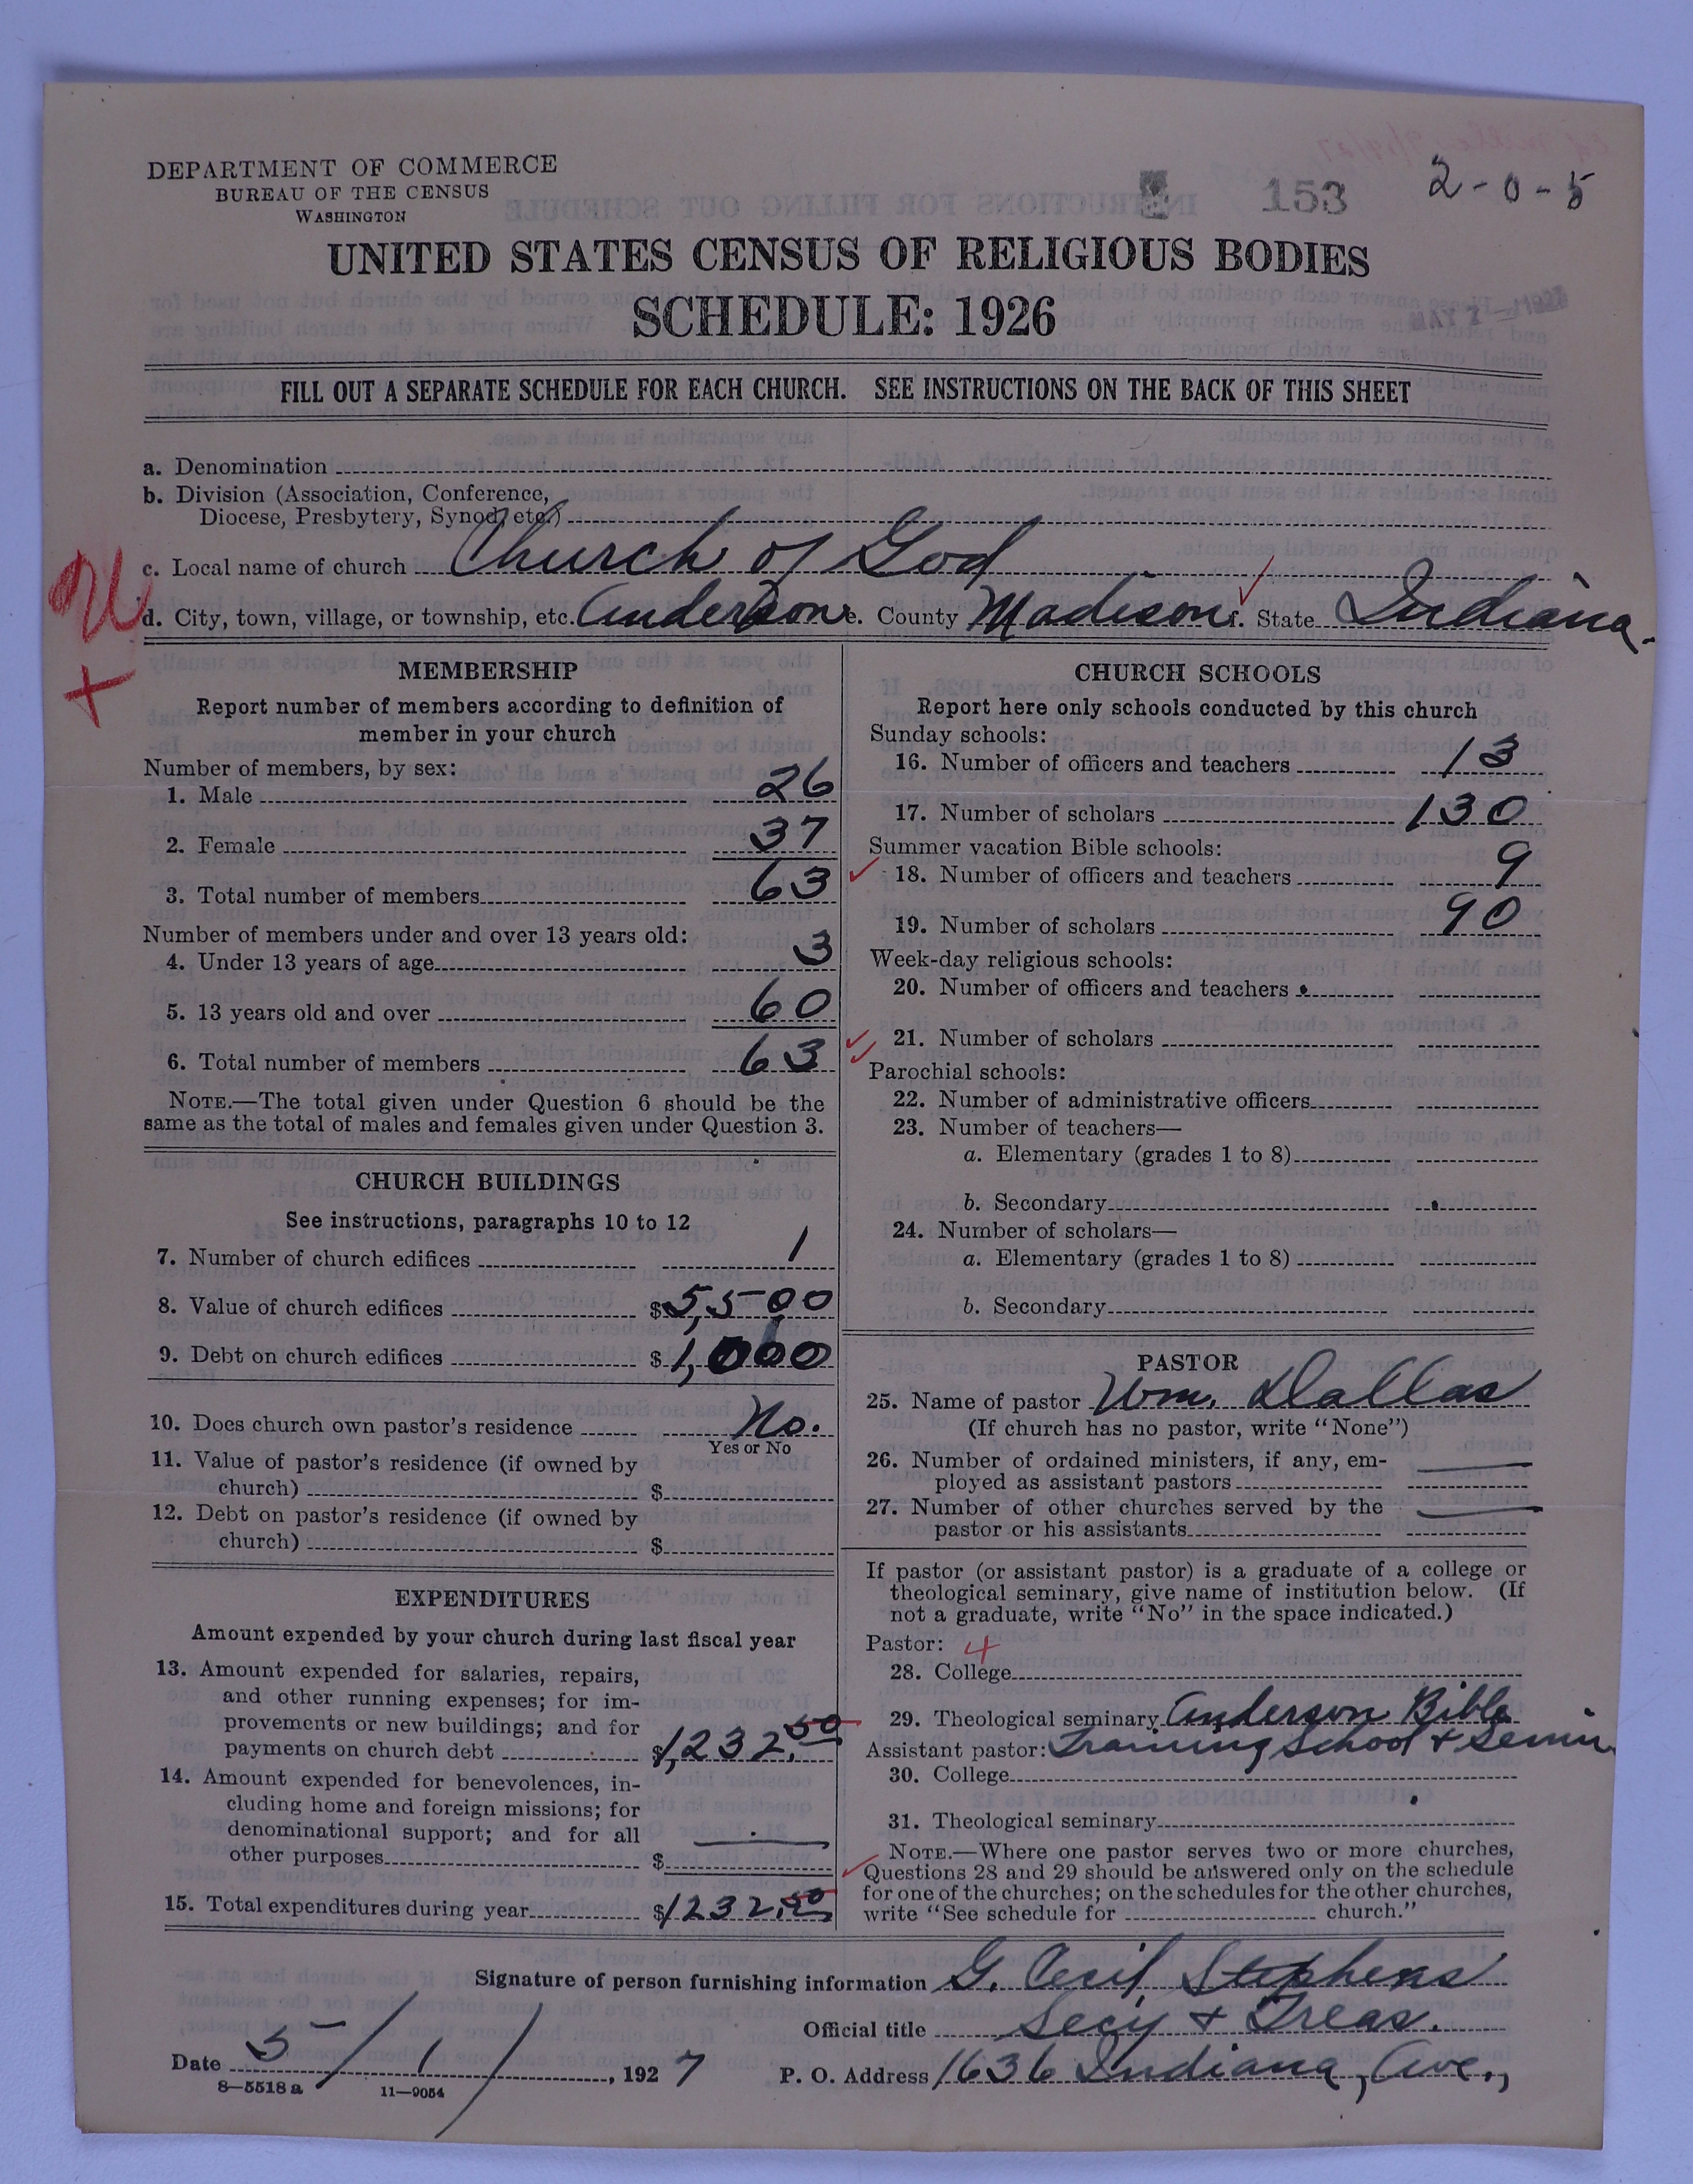 DEPARTMENT OF COMMERCE
BUREAU OF THE CENSUS
WASHINGTON
153
2-0-5
UNITED STATES CENSUS OF RELIGIOUS BODIES
SCHEDULE: 1926
FILL OUT A SEPARATE SCHEDULE FOR EACH CHURCH. SEE INSTRUCTIONS ON THE BACK OF THIS SHEET
a. Denomination
b. Division (Association, Conference,
Diocese, Presbytery, Synod, etc.)
c. Local name of church Church of God
d. City, town, village, or township, etc. Anderson e. County Madison f. State Indiana.
MEMBERSHIP
Report number of members according to definition of
member in your church
Number of members, by sex:
1. Male 26
2. Female 37
3. Total number of members 63
Number of members under and over 13 years old:
4. Under 13 years of age 3
5. 13 years old and over 60
6. Total number of members 63
NOTE.—The total given under Question 6 should be the
same as the total of males and females given under Question 3.
CHURCH BUILDINGS
See instructions, paragraphs 10 to 12
7. Number of church edifices 1
8. Value of church edifices $5,500
9. Debt on church edifices $1,000
10. Does church own pastor's residence No.
Yes or No
11. Value of pastor's residence (if owned by
church) $
12. Debt on pastor's residence (if owned by
church) $
EXPENDITURES
Amount expended by your church during last fiscal year
13. Amount expended for salaries, repairs,
and other running expenses; for im-
provements or new buildings; and for
payments on church debt $1,232.50
14. Amount expended for benevolences, in-
cluding home and foreign missions; for
denominational support; and for all
other purposes $
15. Total expenditures during year $1232.50
CHURCH SCHOOLS
Report here only schools conducted by this church
Sunday schools:
16. Number of officers and teachers 13
17. Number of scholars 130
Summer vacation Bible schools:
18. Number of officers and teachers 9
19. Number of scholars 90
Week-day religious schools:
20. Number of officers and teachers
21. Number of scholars
Parochial schools:
22. Number of administrative officers
23. Number of teachers—
a. Elementary (grades 1 to 8)
b. Secondary
24. Number of scholars—
a. Elementary (grades 1 to 8)
b. Secondary
PASTOR
25. Name of pastor Wm. Dallas
(If church has no pastor, write "None")
26. Number of ordained ministers, if any, em-
ployed as assistant pastors
27. Number of other churches served by the
pastor or his assistants
If pastor (or assistant pastor) is a graduate of a college or
theological seminary, give name of institution below. (If
not a graduate, write "No" in the space indicated.)
Pastor: 4
28. College
29. Theological seminary Anderson Bible
Assistant pastor: Training School & Semin
30. College
31. Theological seminary
NOTE.—Where one pastor serves two or more churches,
Questions 28 and 29 should be answered only on the schedule
for one of the churches; on the schedules for the other churches,
write "See schedule for church."
Signature of person furnishing information G. Cecil Stephens
Official title Secy & Treas.
Date 5/1/, 1927
P. O. Address 1636 Indiana, Ave.,
8—5518 a 11—9054